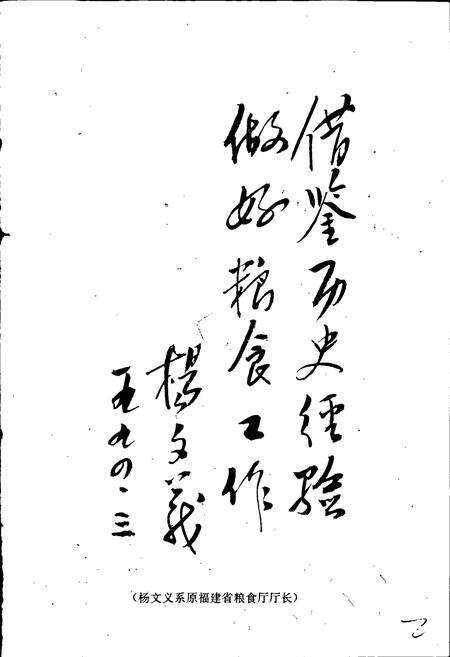 借鉴历史经验
做好粮食工作
楊文義
一九九〇·三
（杨文义系原福建省粮食厅厅长）